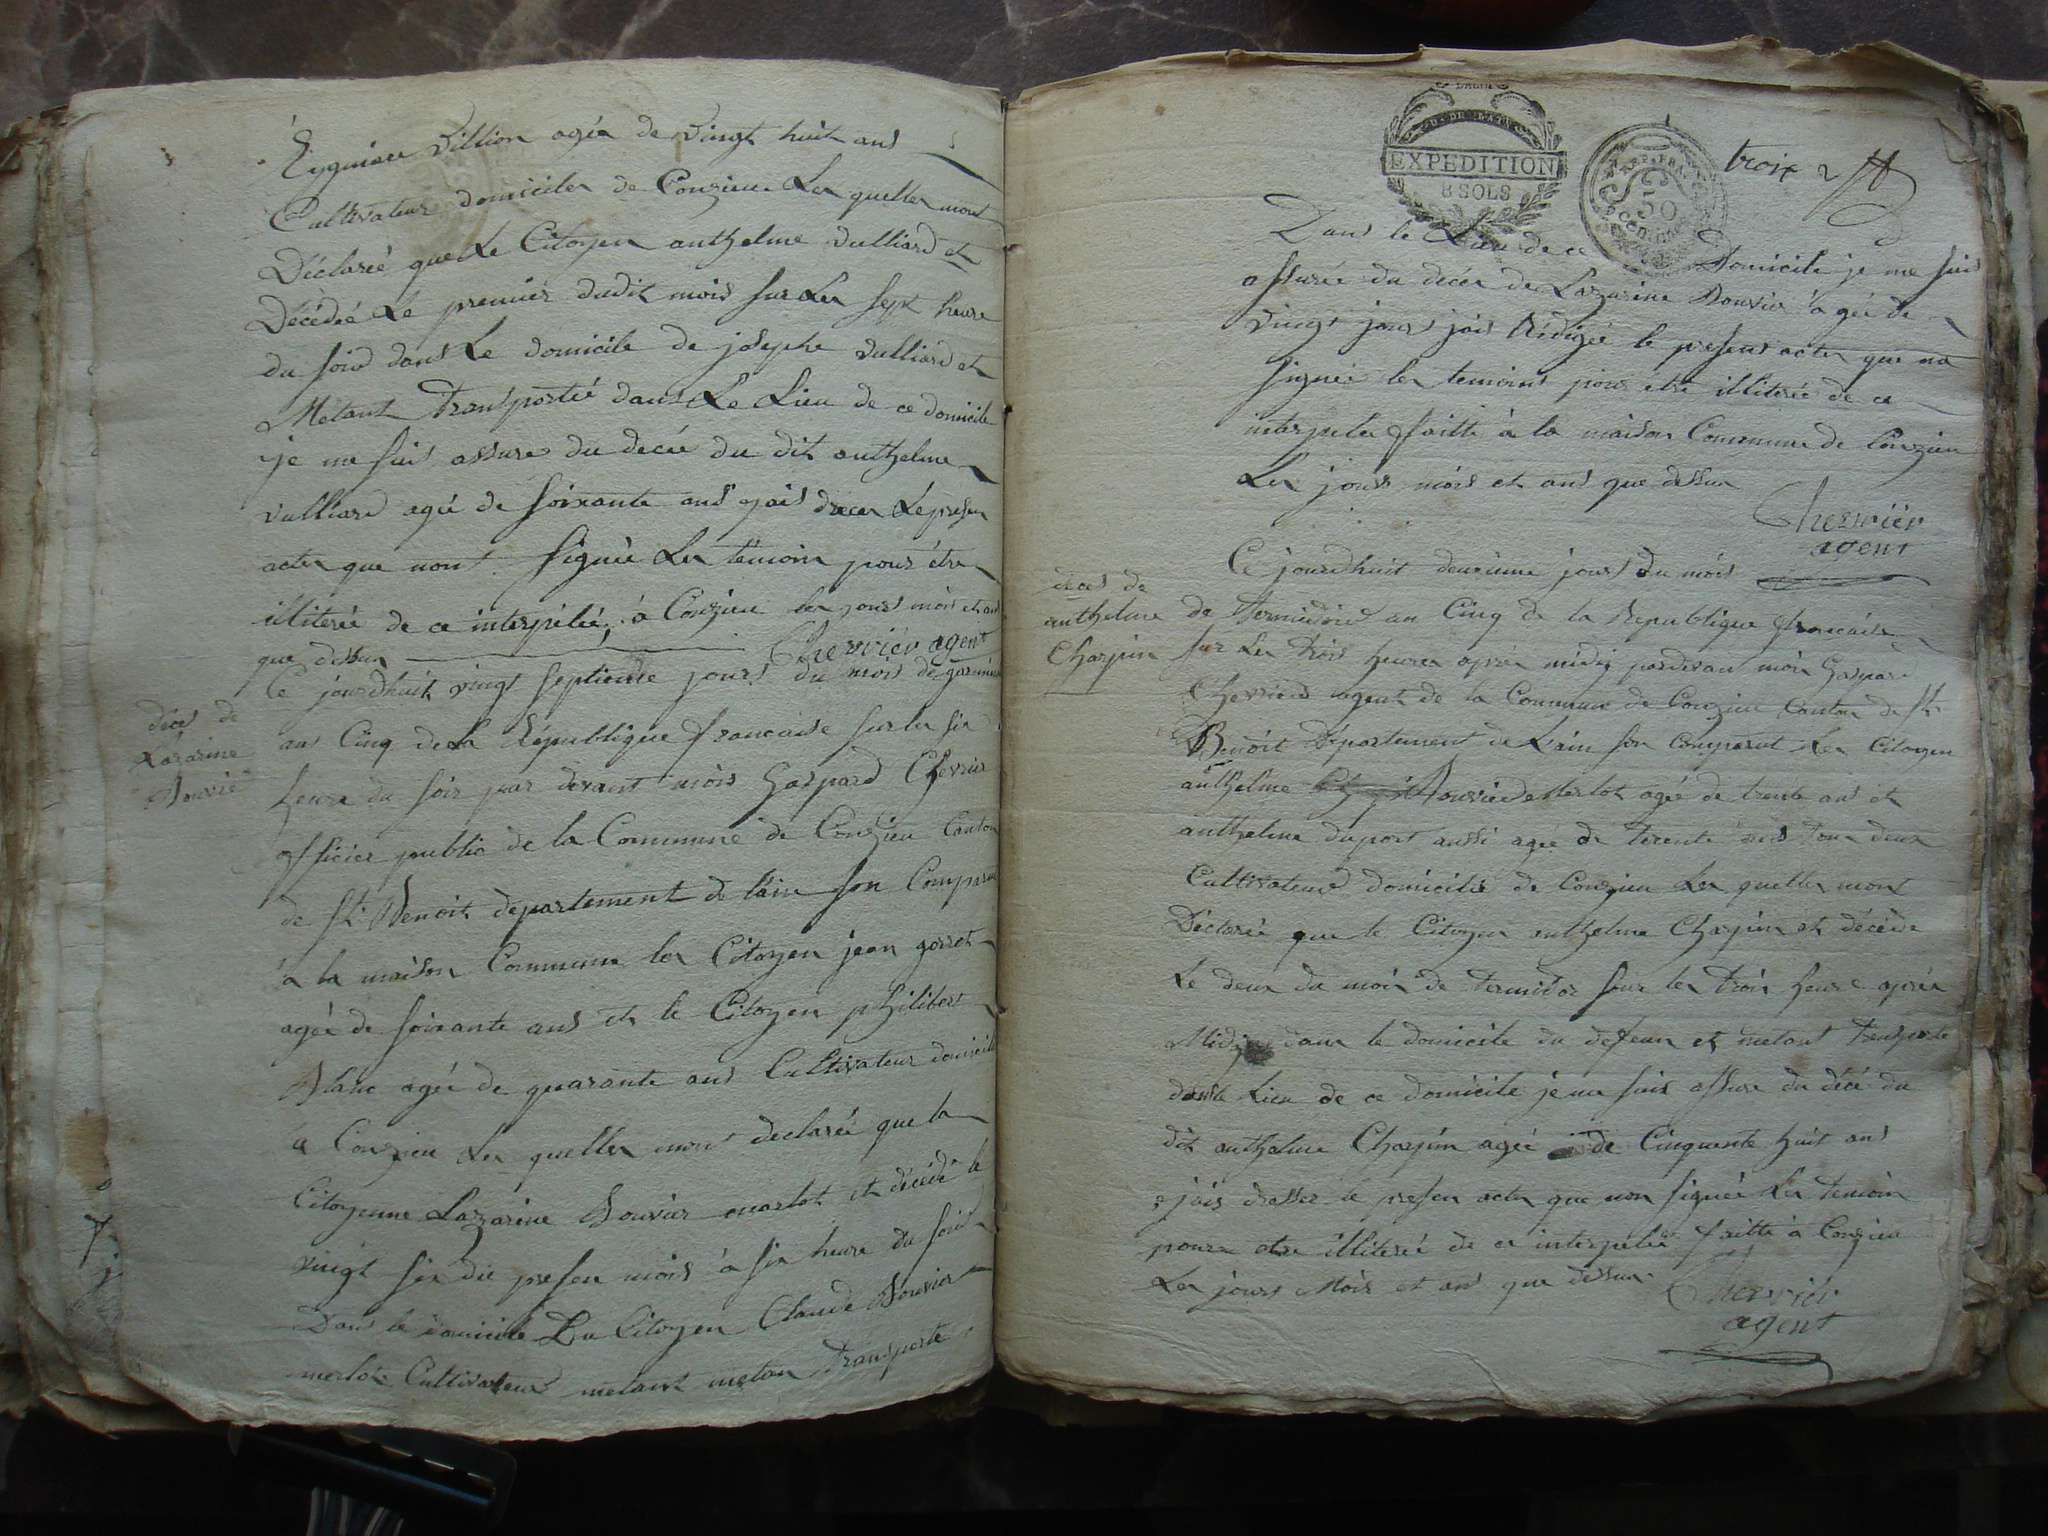 Eyguiare Villion agée de vingt huit ans
Cultivateur domiciler de Conzieu Les quelles mont
Déclarée que Le Citoyen anthelme vulliard et
Décédée Le premier dudit mois sur Les sept heure
du soir dans Le domicile de josephe vulliard et
Métant transportée dans Le Lieu de ce domicile
je me suis assure du decée du dit anthelme
vulliard agée de soixante ans jais dresser Le presen
actes que nont signée Les témoin pour étre
illiterée de ce interpélée à Conzieu les jours mois et ans
que dessus Chevriér agent
déces de
Lazarine
Bouvié
Ce jourdhuit vingt septieme jours du mois de
an Cinq de La République francaise sur les six
heure du soir par devant mois Gaspard Chevrier
officier public de la Commune de Conzieu Canton
de St. Benoit departement de lain son Comparu
à la maison Commune les Citoyen jean gorret
agée de soixante ans et le Citoyen philibert
Blanc agée de quarante ans Cultivateur domicilé
a Conzieu Les quelles mont declarée que la
Citoyenne Lazarine Bouvier merlot et décédé le
vingt six du presen mois à six heure du soir
Dans le domicile Du Citoyen Claude Bouvier
merlot Cultivateur métant metan transporte
LAIN
EXPEDITION
8 SOLS
REP. FRA.
50
CENTIMES
troix
Dans le Lieu de ce Domicile je me suis
assurée du decée de Lazarine Bouvié agée de
vingt jours jais Rédigée le presens actes que na
signée les temoins pour etre illiterée de ce
interpeler faitte à la maison Commune de Conzieu
Les jours mois et ans que dessus
Chevriér
agent
deces de
anthelme
Charpin
Ce jourdhuit deuxieme jours du mois
de termidore an Cinq de la Republique francaise
sur Les trois heures aprés midy pardevan mois Gaspard
Chevriers agent de la Commune de Conzieu Canton de St
Benoit Département de Lain son Comparut Les Citoyen
anthelme Bouvier merlot agée de trente ans et
anthelme duport aussi agée de trente ans tour deux
Cultivateurs domicilié de Conzieu Les quelles mont
Déclarée que le Citoyen anthelme Charpin et décéde
Le deux du mois de termidor sour les trois heure aprés
Midy dans le domicile du defeun et metant transporté
dans le Lieu de ce domicile je me suis assure du décé du
dit anthelme Charpin agée de Cinquente huit ans
jais dresser le presen actes que non signée Les temoin
pour etre illiterée de ce interpelée faitte à Conzieu
Les jours Mois et ans que dessus
Chevriér
agent